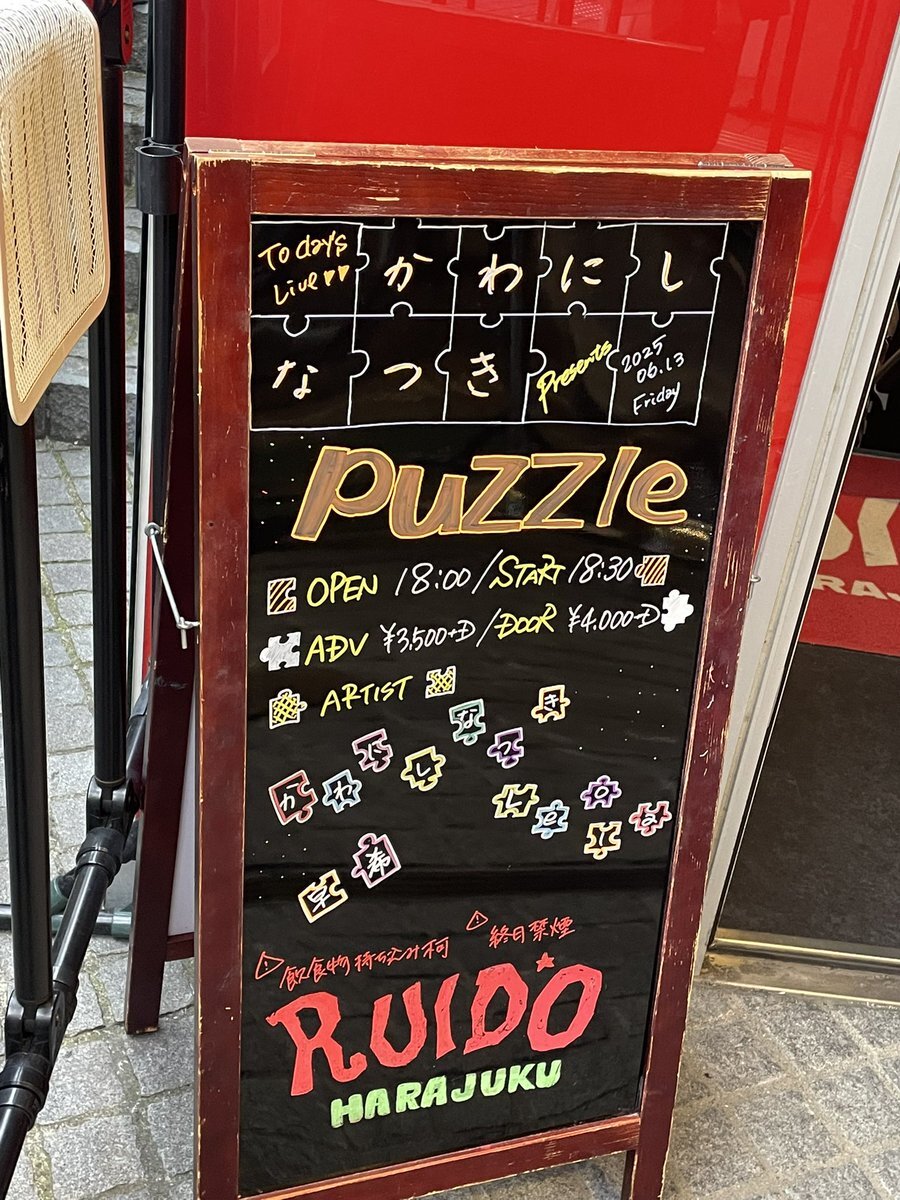 Today's Live♥♥ かわにし
なつき Presents 2025 06.13 Friday
Puzzle
OPEN 18:00 / START 18:30
ADV ¥3,500+D / DOOR ¥4,000+D
ARTIST
かわにしなつき
京希
⚠飲食物持ち込み不可
⚠終日禁煙
RUIDO
HARAJUKU